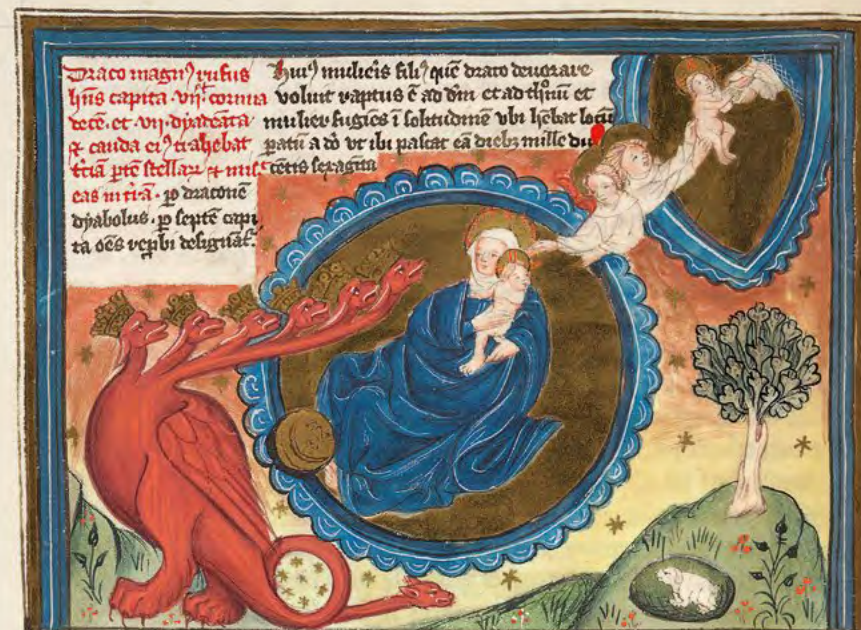 Draco magn⁹ rufus
hn̄s capita · vij · cornua
decē · et · vij · dyademata
⁊ cauda ei⁹ trahebat
tciā ptē stellaꝝ ⁊ mis
eas in trā · ꝑ draconē
dyabolus · ꝑ septē capi
ta oēs designat᷑.
Hui⁹ mulieris fili⁹ quē draco deuorare
voluit raptus ē ad dm̄ et ad thronū et
mulier fugiēs ī solitudinē vbi hēbat locū
patū a dō vt ibi pascat eā diebꝫ mille du
cētis sexaginta